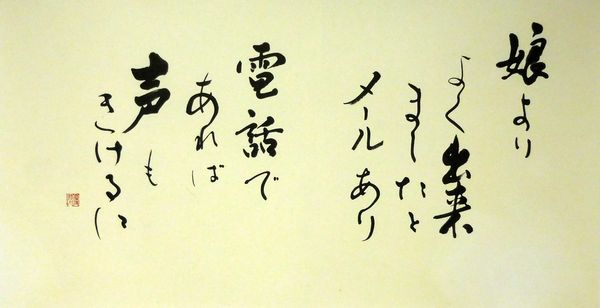 娘より
よく出来
ましたと
メールあり
電話で
あれば
声も
きけるに